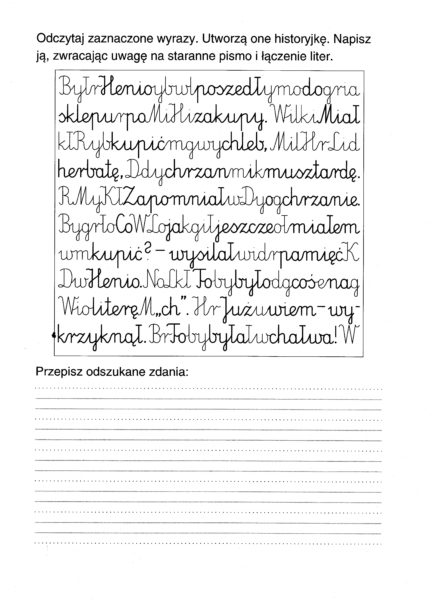 Odczytaj zaznaczone wyrazy. Utworzą one historyjkę. Napisz
ją, zwracając uwagę na staranne pismo i łączenie liter.
ByłrHenioybwłposzedłymodogna
sklepurpaMiHizakupy. WilkiMiał
kIRybkupićmgwychleb, MilHrLid
herbatę, Ddychrzanmikmusztardę.
RMyKIZapomniałwDyogchrzanie.
BygrłoCoWLojakgiłjeszczeołmiałem
wmkupić? – wysilałwidrpamięćK
DwHenio. NaLkITobybyłodgcośenag
WioliteręM„ch”. HrJużuwiem – wy-
krzyknął. BrTobybyłałwchałwa! W
Przepisz odszukane zdania: